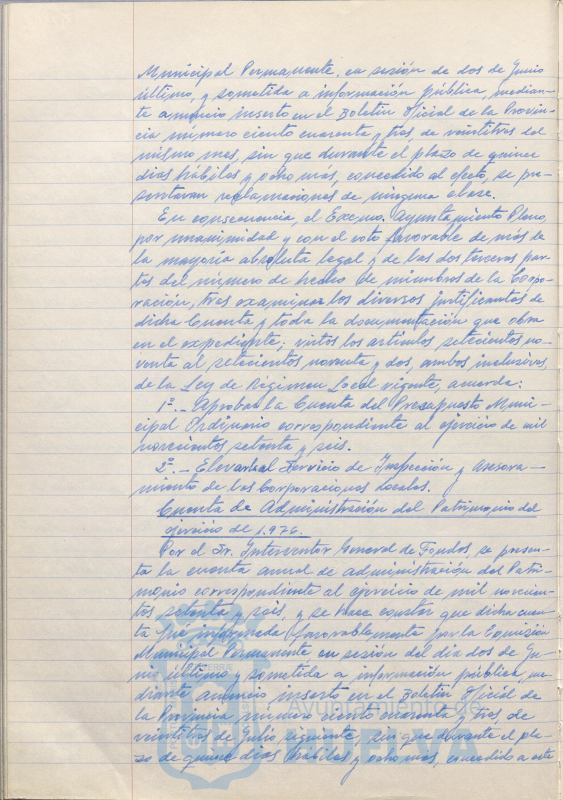 Municipal Permanente, en sesión de dos de Junio
último, y sometida a información pública, median-
te anuncio inserto en el Boletín Oficial de la Provin-
cia número ciento cuarenta y tres de veintitres del
mismo mes, sin que durante el plazo de quince
dias hábiles y ocho mas, concedido al efecto, se pre-
sentaran reclamaciones de ninguna clase.
En consecuencia, el Excmo. Ayuntamiento Pleno,
por unanimidad y con el voto favorable de más de
la mayoria absoluta legal y de las dos terceras par-
tes del número de hecho de miembros de la Corpo-
ración, tras examinar los diversos justificantes de
dicha Cuenta y toda la documentación que obra
en el expediente; vistos los artículos setecientos no-
venta al setecientos noventa y dos, ambos inclusives,
de la Ley de Régimen Local vigente, acuerda:
1º.- Aprobar la Cuenta del Presupuesto Muni-
cipal Ordinario correspondiente al ejercicio de mil
novecientos setenta y seis.
2º.- Elevarla al Servicio de Inspección y Asesora-
miento de las Corporaciones Locales.
Cuenta de Administración del Patrimonio del
ejercicio de 1.976.
Por el Sr. Interventor General de Fondos, se presen-
ta la cuenta anual de administración del Patri-
monio correspondiente al ejercicio de mil novecien-
tos setenta y seis, y se hace constar que dicha cuen-
ta fué informada favorablemente por la Comisión
Municipal Permanente en sesión del dia dos de Ju-
nio último y sometida a información pública, me-
diante anuncio inserto en el Boletín Oficial de
la Provincia, número ciento cuarenta y tres, de
veintitres de Julio siguiente, sin que durante el pla-
zo de quince dias hábiles y ocho mas, concedido a este
Ayuntamiento de
HUELVA